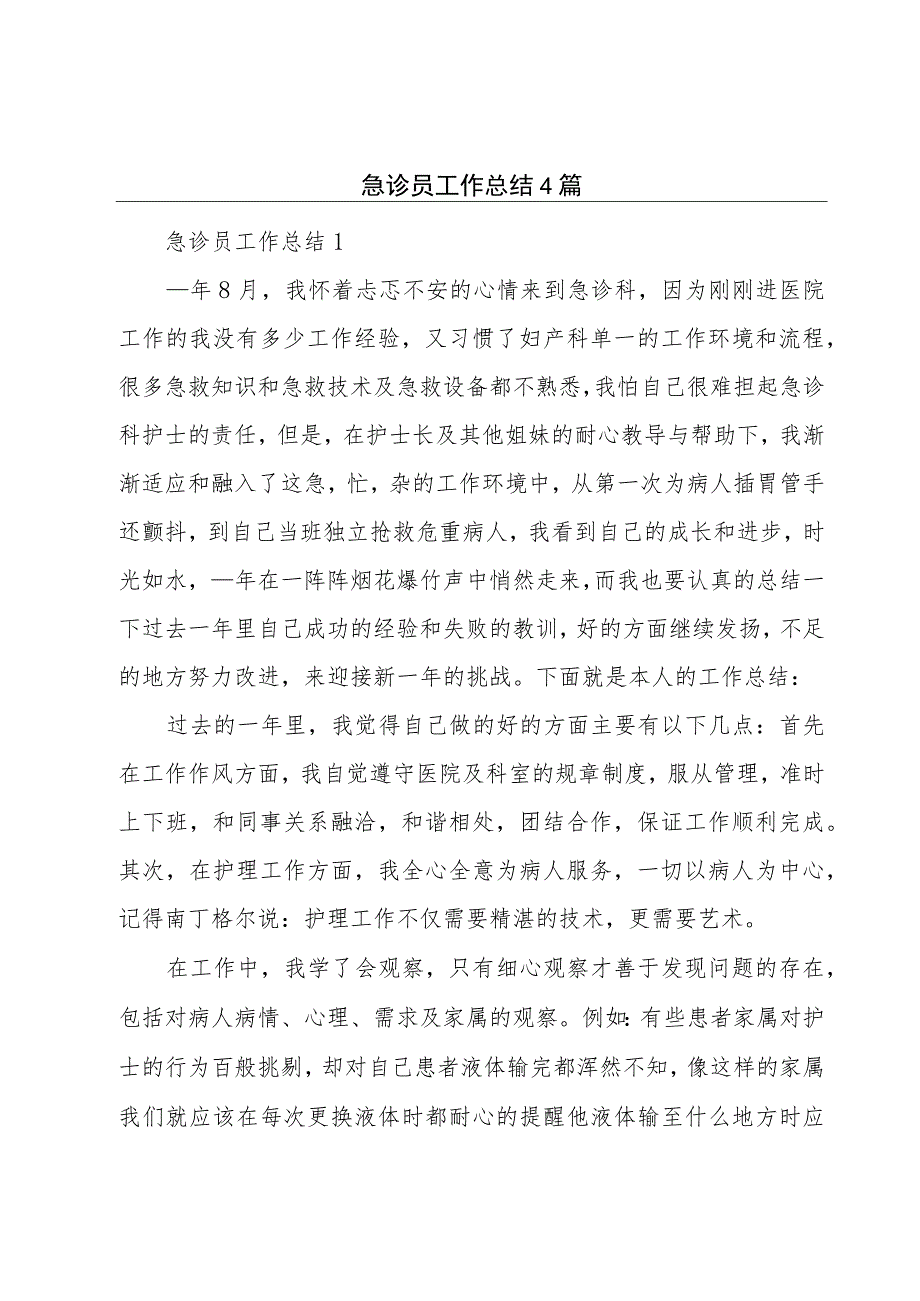 急诊员工作总结4篇
急诊员工作总结1
—年8月，我怀着忐忑不安的心情来到急诊科，因为刚刚进医院
工作的我没有多少工作经验，又习惯了妇产科单一的工作环境和流程，
很多急救知识和急救技术及急救设备都不熟悉，我怕自己很难担起急诊
科护士的责任，但是，在护士长及其他姐妹的耐心教导与帮助下，我渐
渐适应和融入了这急，忙，杂的工作环境中，从第一次为病人插胃管手
还颤抖，到自己当班独立抢救危重病人，我看到自己的成长和进步，时
光如水，—年在一阵阵烟花爆竹声中悄然走来，而我也要认真的总结一
下过去一年里自己成功的经验和失败的教训，好的方面继续发扬，不足
的地方努力改进，来迎接新一年的挑战。下面就是本人的工作总结：
过去的一年里，我觉得自己做的好的方面主要有以下几点：首先
在工作作风方面，我自觉遵守医院及科室的规章制度，服从管理，准时
上下班，和同事关系融洽，和谐相处，团结合作，保证工作顺利完成。
其次，在护理工作方面，我全心全意为病人服务，一切以病人为中心，
记得南丁格尔说：护理工作不仅需要精湛的技术，更需要艺术。
在工作中，我学了会观察，只有细心观察才善于发现问题的存在，
包括对病人病情、心理、需求及家属的观察。例如：有些患者家属对护
士的行为百般挑剔，却对自己患者液体输完都浑然不知，像这样的家属
我们就应该在每次更换液体时都耐心的提醒他液体输至什么地方时应